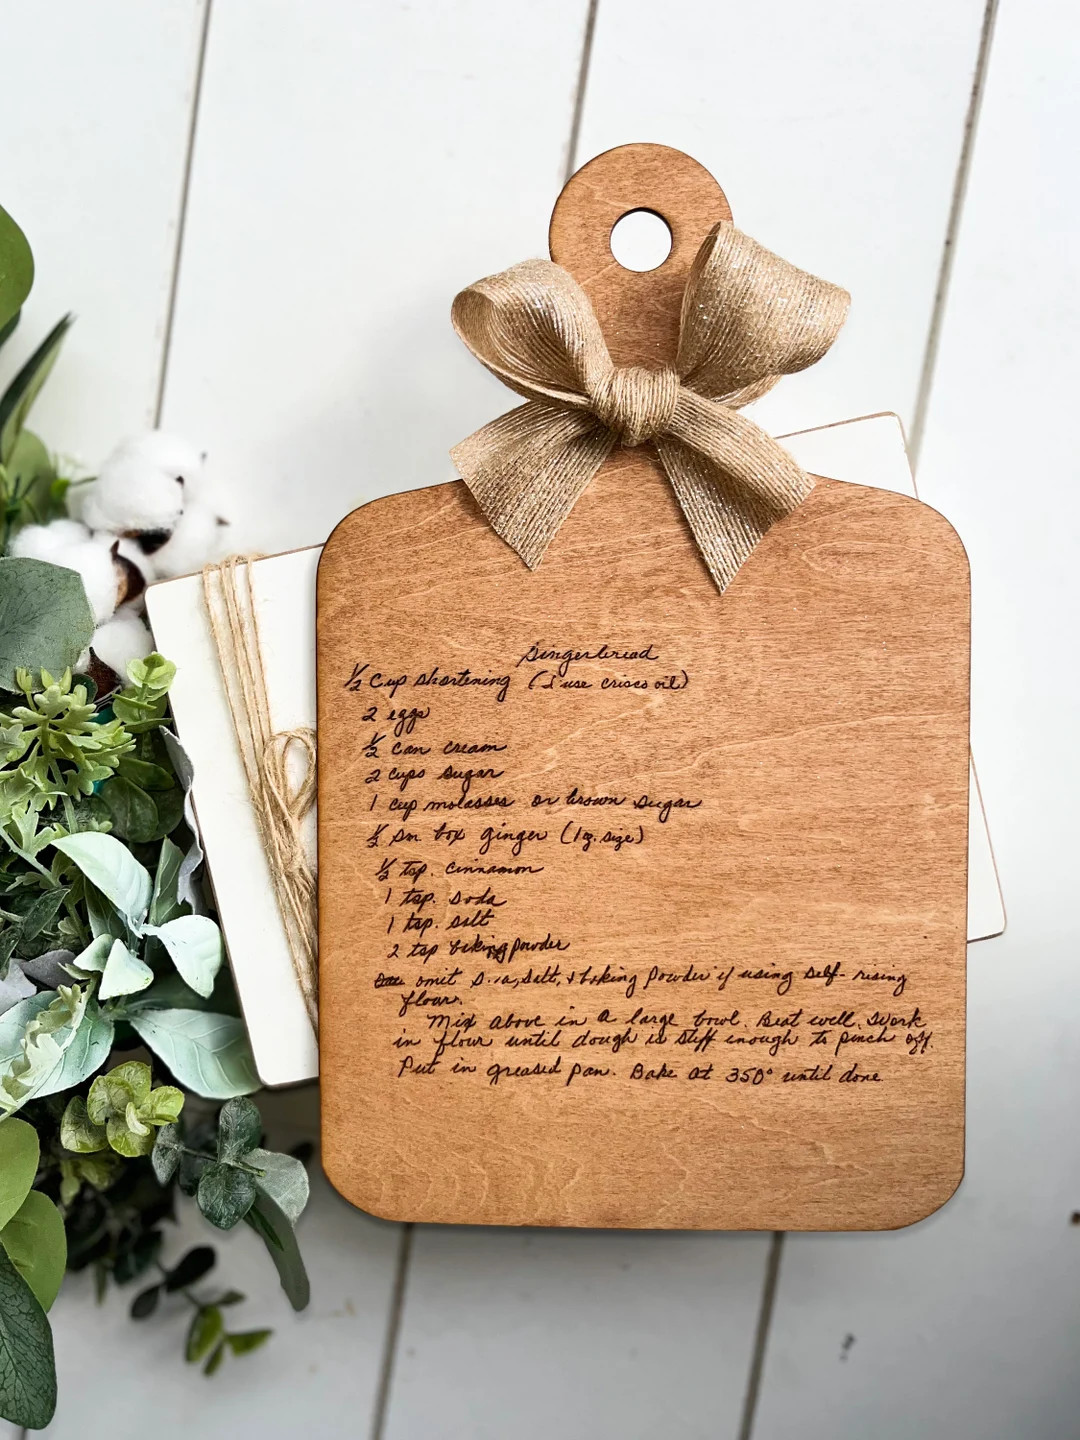 Gingerbread
½ Cup shortening (I use crisco oil)
2 eggs
½ can cream
2 cups sugar
1 cup molasses or brown sugar
½ sm box ginger (1 oz. size)
½ tsp. cinnamon
1 tsp. soda
1 tsp. salt
2 tsp baking powder
omit soda, salt, & baking powder if using self-rising
flour.
Mix above in a large bowl. Beat well. Work
in flour until dough is stiff enough to pinch off.
Put in greased pan. Bake at 350° until done.